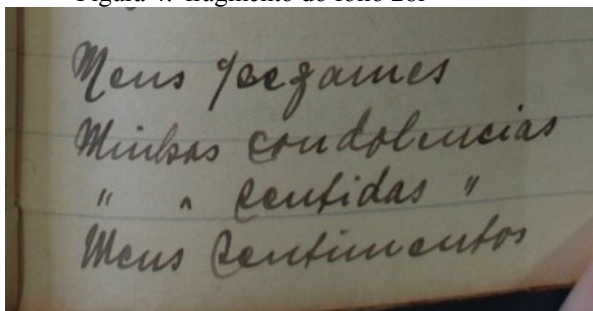 Meus pezames
Minhas condolencias
" " sentidas "
Meus sentimentos